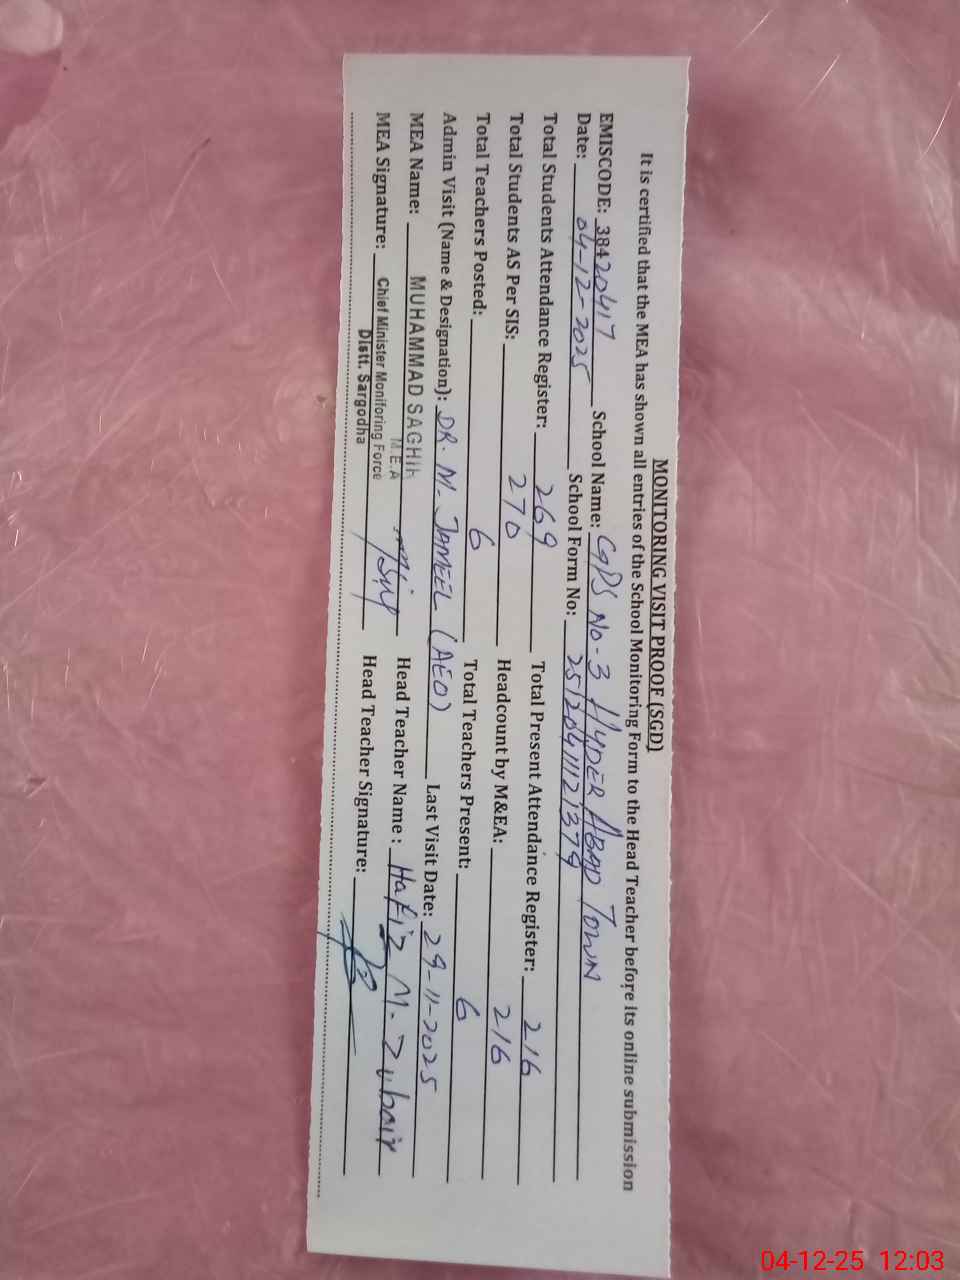 MONITORING VISIT PROOF (SGD)
It is certified that the MEA has shown all entries of the School Monitoring Form to the Head Teacher before its online submission
EMISCODE: 38420417 School Name: GPS No-3 HYDER ABAD TOWN
Date: 04-12-2025 School Form No: 25120411121379
Total Students Attendance Register: 269 Total Present Attendance Register: 216
Total Students AS Per SIS: 270 Headcount by M&EA: 216
Total Teachers Posted: 6 Total Teachers Present: 6
Admin Visit (Name & Designation): DR. M. JAMEEL (AEO) Last Visit Date: 29-11-2025
MEA Name: MUHAMMAD SAGHIR Head Teacher Name : Hafiz M. Zubair
M.E.A
MEA Signature: Chief Minister Monitoring Force Head Teacher Signature:
Distt. Sargodha
04-12-25 12:03